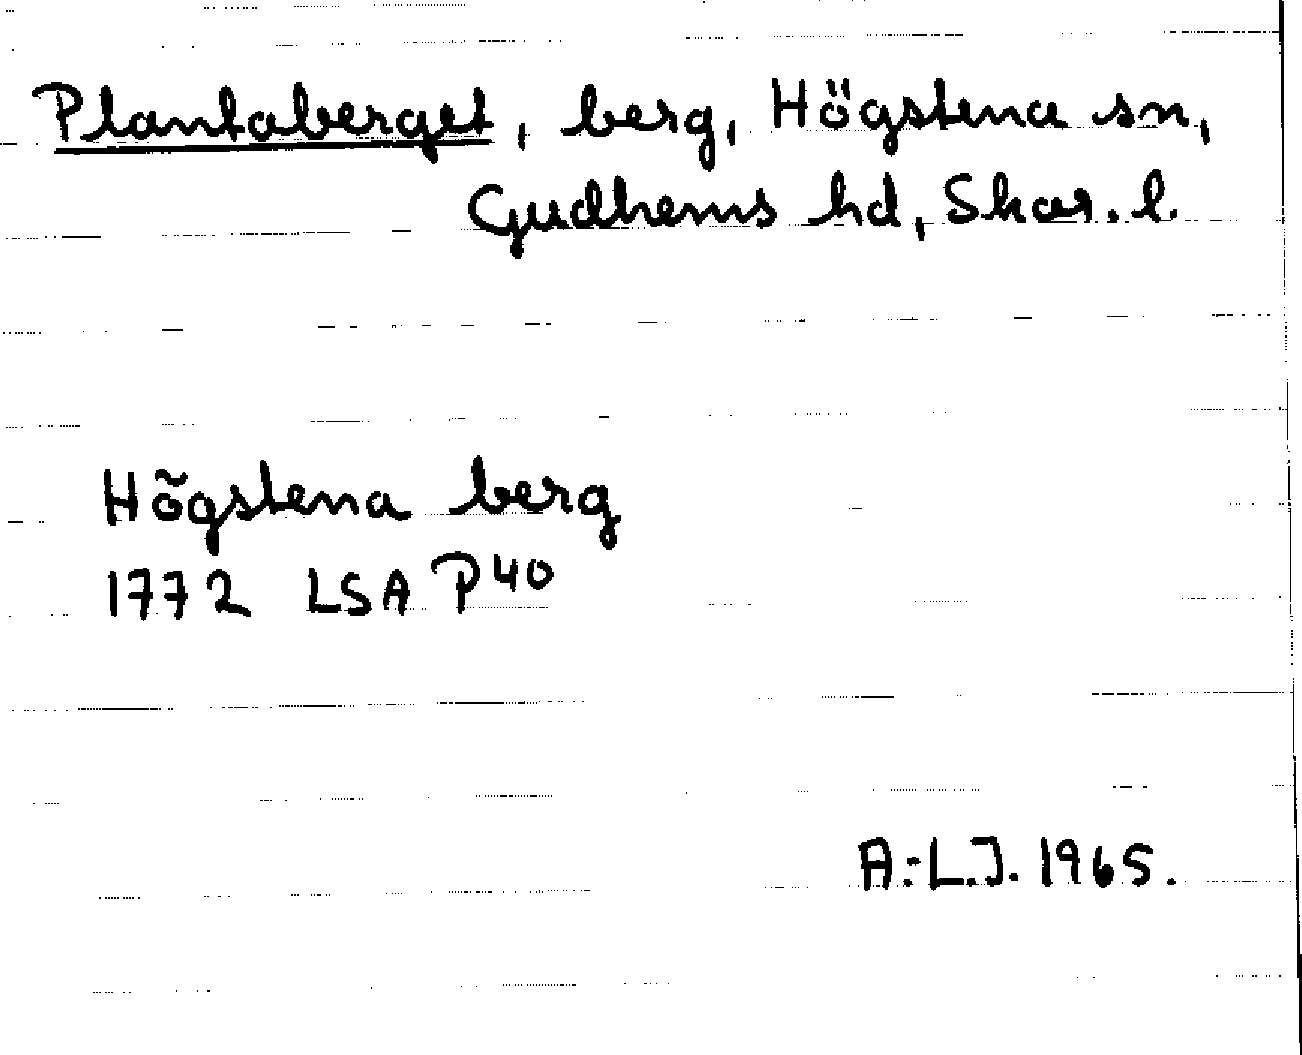 Plantaberget, berg, Högstena sn,
Gudhems hd, Skar. l.
Högstena berg
1772 LSA P40
A.-L.J. 1965.